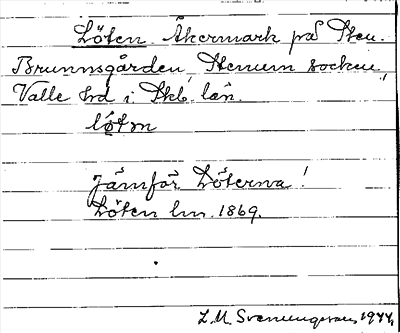 Löten Åkermark på Sten.
Brunnsgården, Stenum socken,
Valle hrd i Skb. län.
lö́tn
Jämför Löterna!
Löten lm. 1869.
L.M. Svenungsson, 1944,